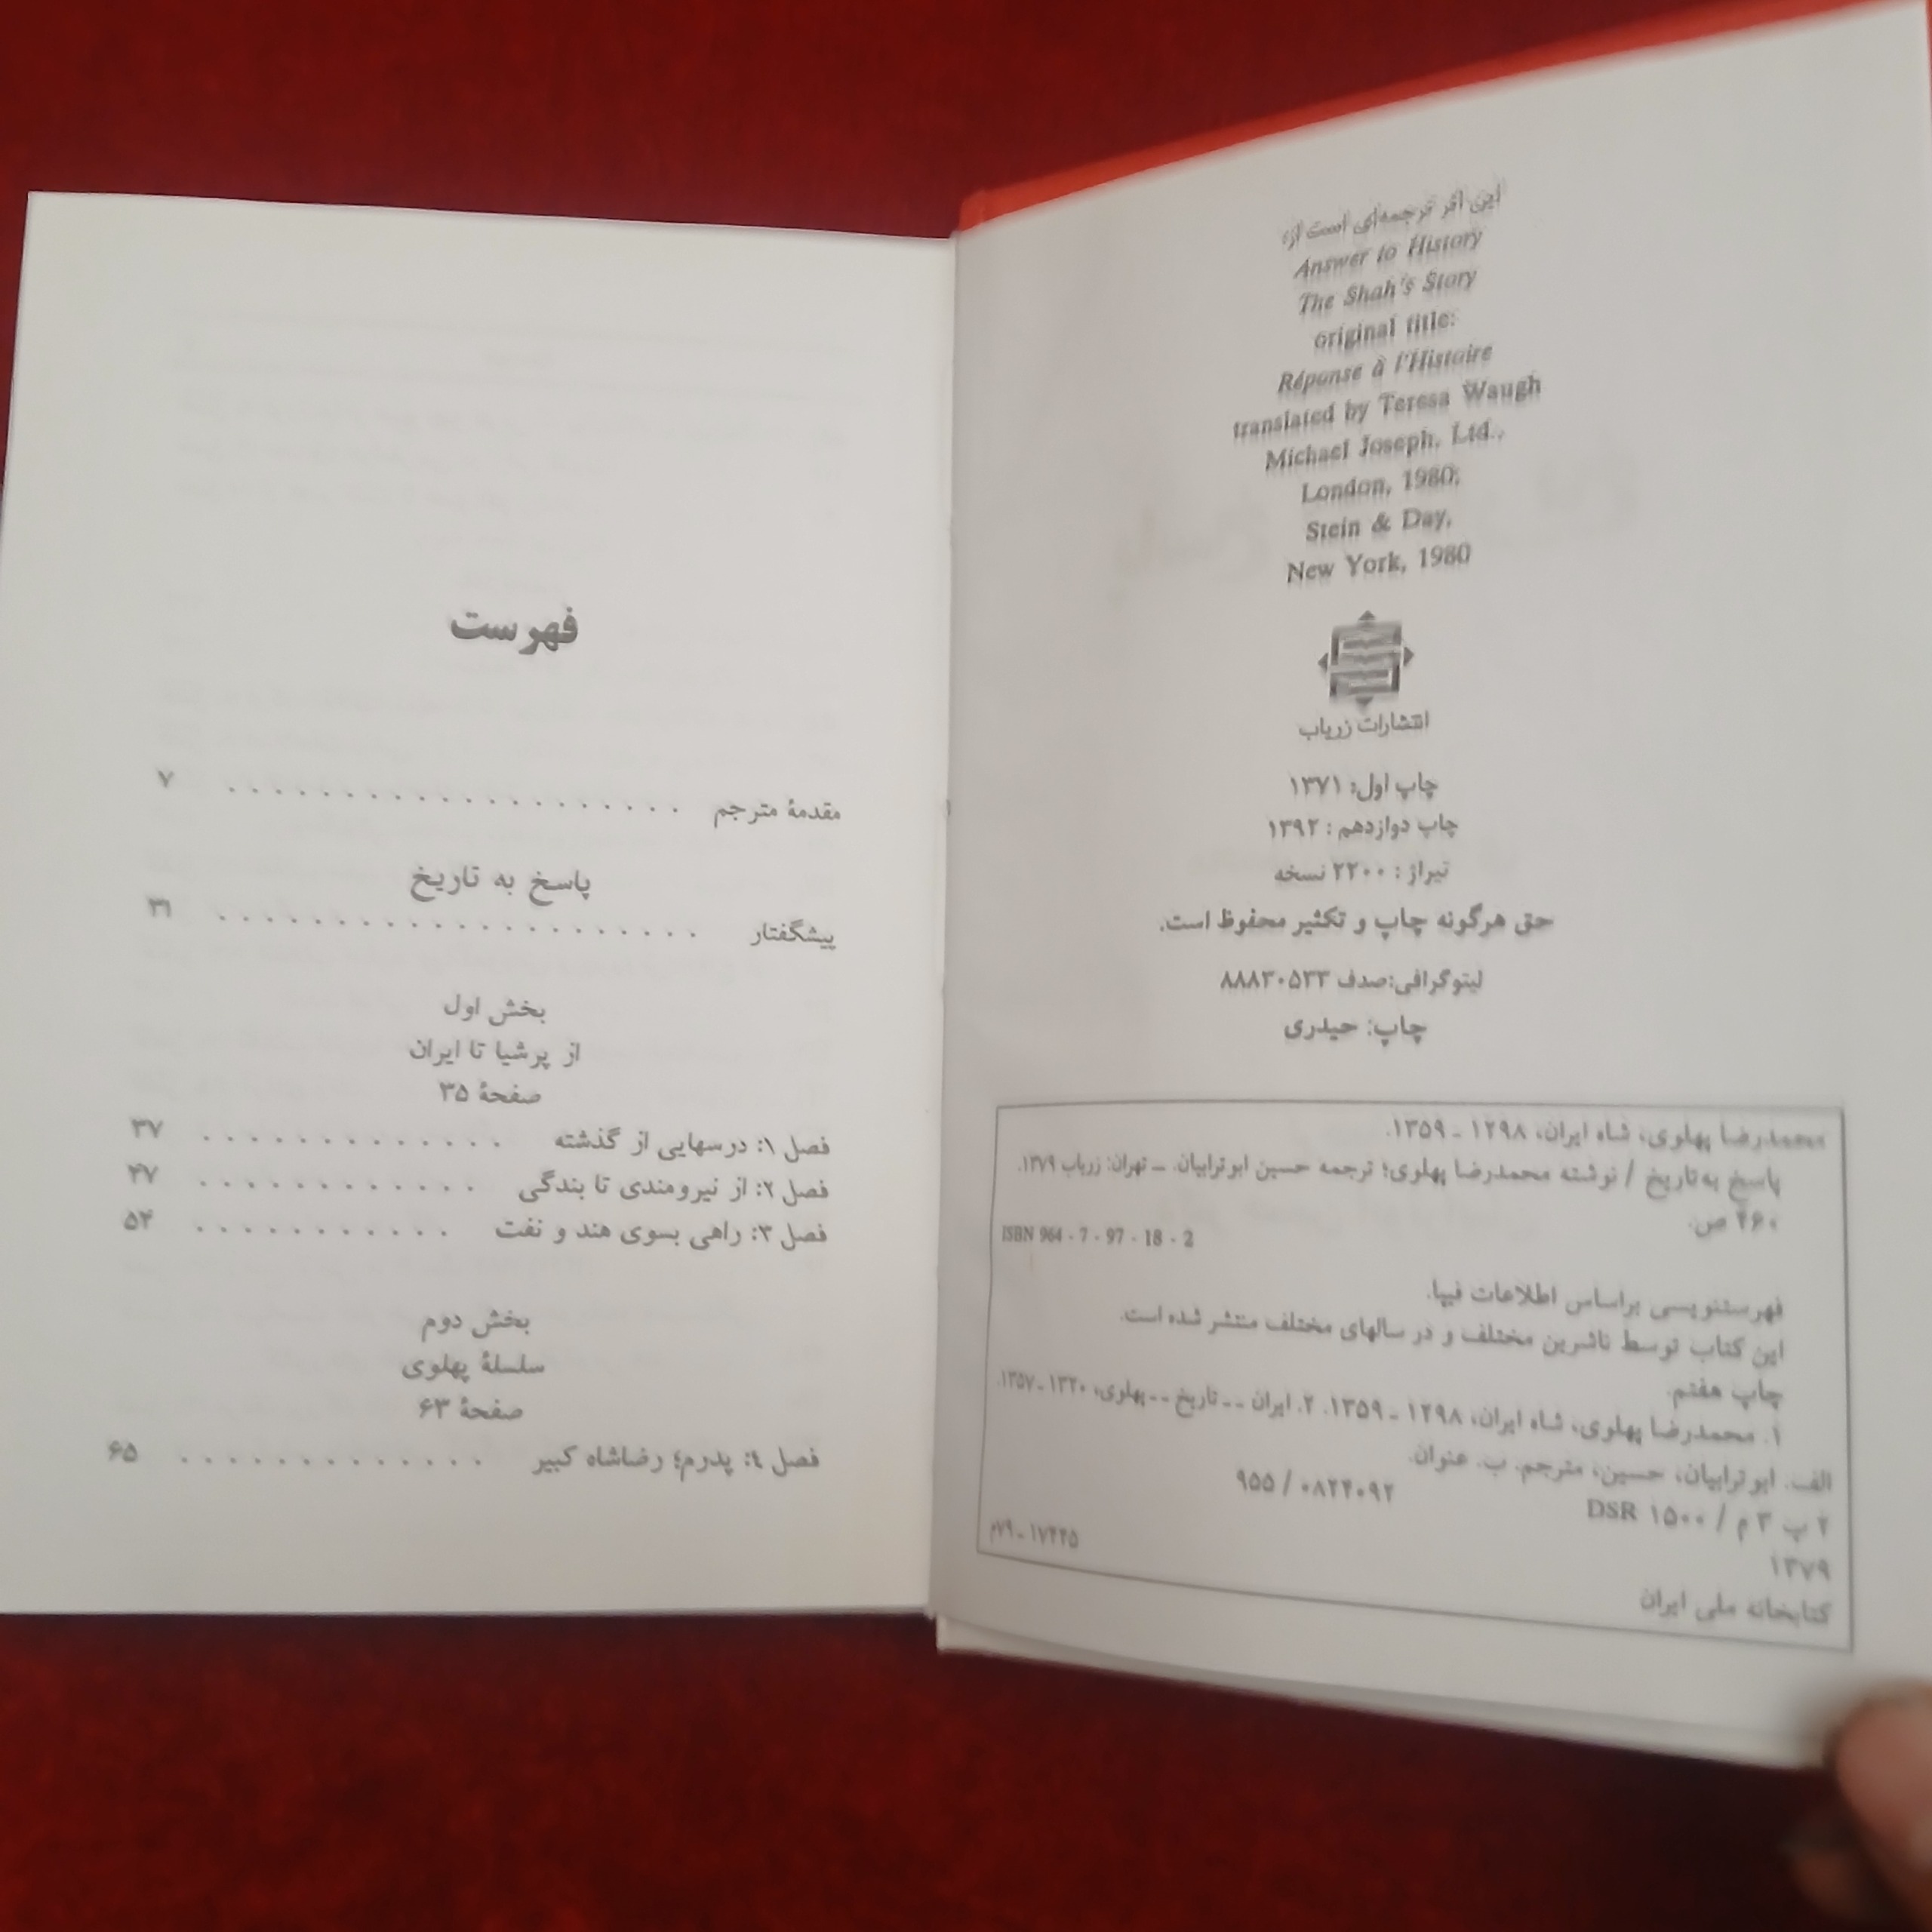 این اثر ترجمه‌ای است از:
Answer to History
The Shah's Story
original title:
Réponse à l'Histoire
translated by Teresa Waugh
Michael Joseph, Ltd.,
London, 1980;
Stein & Day,
New York, 1980
انتشارات زریاب
چاپ اول: ۱۳۷۱
چاپ دوازدهم : ۱۳۹۲
تیراژ : ۲۲۰۰ نسخه
حق هرگونه چاپ و تکثیر محفوظ است.
لیتوگرافی:صدف ۸۸۸۳۰۵۳۳
چاپ: حیدری
محمدرضا پهلوی، شاه ایران، ۱۲۹۸ ـ ۱۳۵۹.
پاسخ به‌تاریخ / نوشته محمدرضا پهلوی؛ ترجمه حسین ابوترابیان. ـ تهران: زریاب ۱۳۷۹.
۴۶۰ ص.
ISBN 964 - 7 - 97 - 18 - 2
فهرستنویسی براساس اطلاعات فیپا.
این کتاب توسط ناشرین مختلف و در سالهای مختلف منتشر شده است.
چاپ هفتم.
۱. محمدرضا پهلوی، شاه ایران، ۱۲۹۸ ـ ۱۳۵۹. ۲. ایران ـ ـ تاریخ ـ ـ پهلوی، ۱۳۲۰ ـ ۱۳۵۷.
الف. ابوترابیان، حسین، مترجم. ب. عنوان.
۲ پ ۳ م / ۱۵۰۰ DSR
۹۵۵ / ۰۸۲۴۰۹۲
۱۳۷۹
کتابخانه ملی ایران
فهرست
مقدمهٔ مترجم . . . . . . . . . . . . . . . . . . . . ۷
پاسخ به تاریخ
پیشگفتار . . . . . . . . . . . . . . . . . . . . . ۳۱
بخش اول
از پرشیا تا ایران
صفحهٔ ۳۵
فصل ۱: درسهایی از گذشته . . . . . . . . . . . . . ۳۷
فصل ۲: از نیرومندی تا بندگی . . . . . . . . . . . . ۴۷
فصل ۳: راهی بسوی هند و نفت . . . . . . . . . . . ۵۴
بخش دوم
سلسلهٔ پهلوی
صفحهٔ ۶۳
فصل ٤: پدرم؛ رضاشاه کبیر . . . . . . . . . . . . . ۶۵